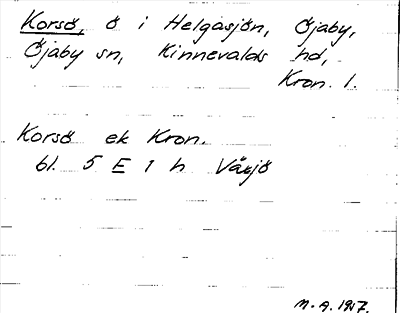 Korsö, ö i Helgasjön, Öjaby,
Öjaby sn, Kinnevalds hd,
Kron. l.
Korsö ek Kron.
bl. 5 E 1 h Växjö
M.A. 1957.